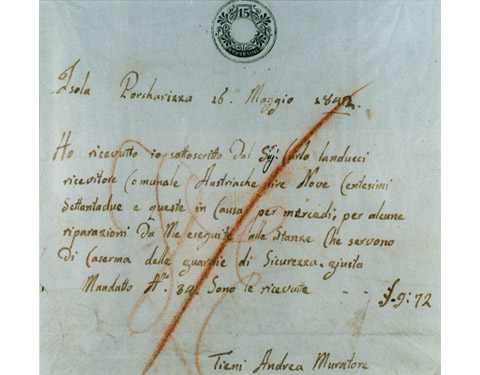 15
CENTESIMI
Isola Porcharizza 16. Maggio 1842.
Ho ricevutto io sottoscritto dal Sig: Carlo Landucci
ricevitore Comunale Austriache lire Nove Centesimi
Settantadue e queste in Causa per mercedi, per alcune
riparazioni da Me eseguite alle Stanze Che servono
Di Caserma delle guardie di Sicurezza giusta
Mandatto N. 34. Sono le ricevutte - - £-9:72
Tieni Andrea Muratore